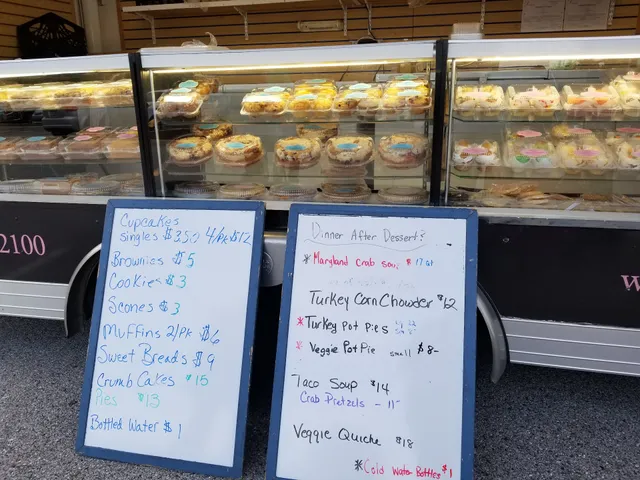 2100
w
Cupcakes
singles $3.50 4/PK $12
Brownies $5
Cookies $3
Scones $3
Muffins 2/PK $6
Sweet Breads $9
Crumb Cakes $15
Pies $13
Bottled Water $1
Dinner After Dessert?
* Maryland Crab Soup $17 qt
Turkey Corn Chowder $12
* Turkey Pot Pies
* Veggie Pot Pie small $8-
Taco Soup $14
Crab Pretzels - 11-
Veggie Quiche $18
* Cold Water Bottles $1